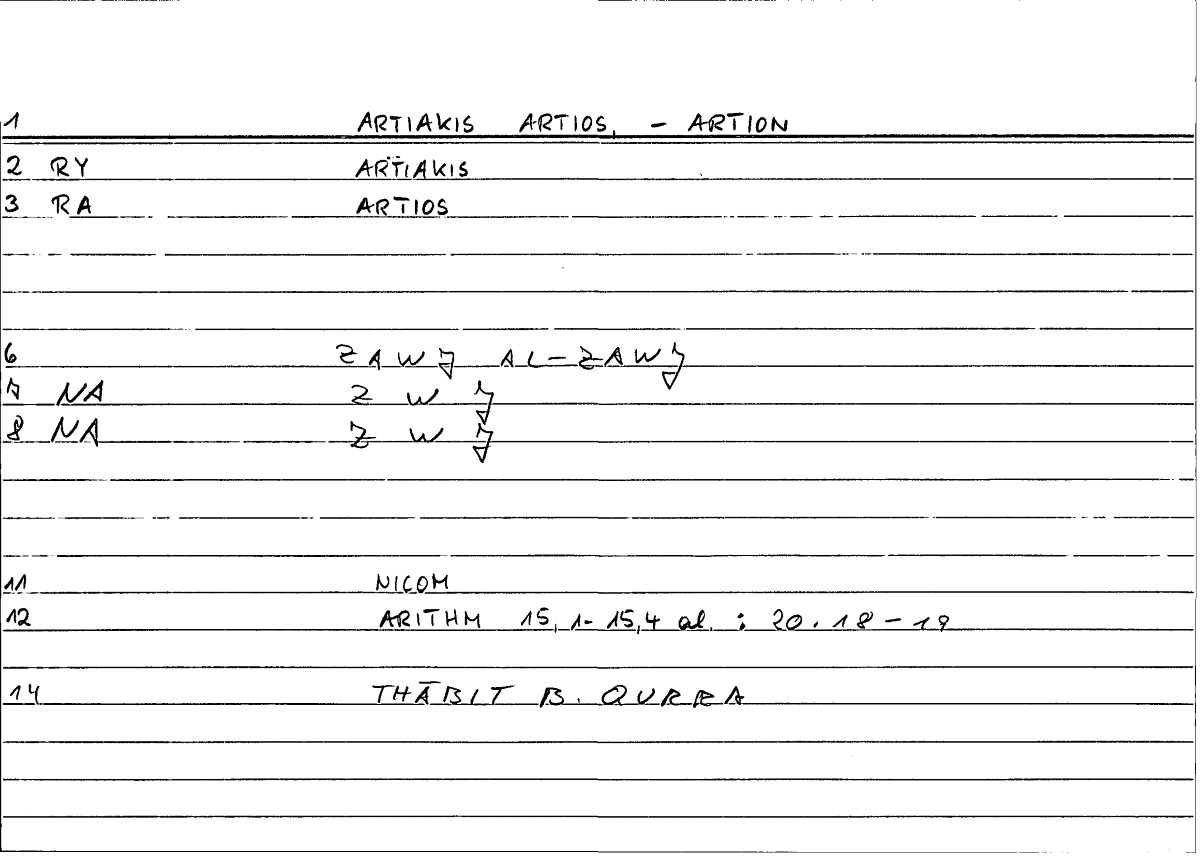 1 ARTIAKIS ARTIOS, - ARTION
2 RY ARTIAKIS
3 RA ARTIOS
6 ZAWǦ AL-ZAWǦ
7 NA Z W Ǧ
8 NA Z W Ǧ
11 NICOM
12 ARITHM 15, 1-15,4 al. : 20.18-19
14 THĀBIT B. QURRA